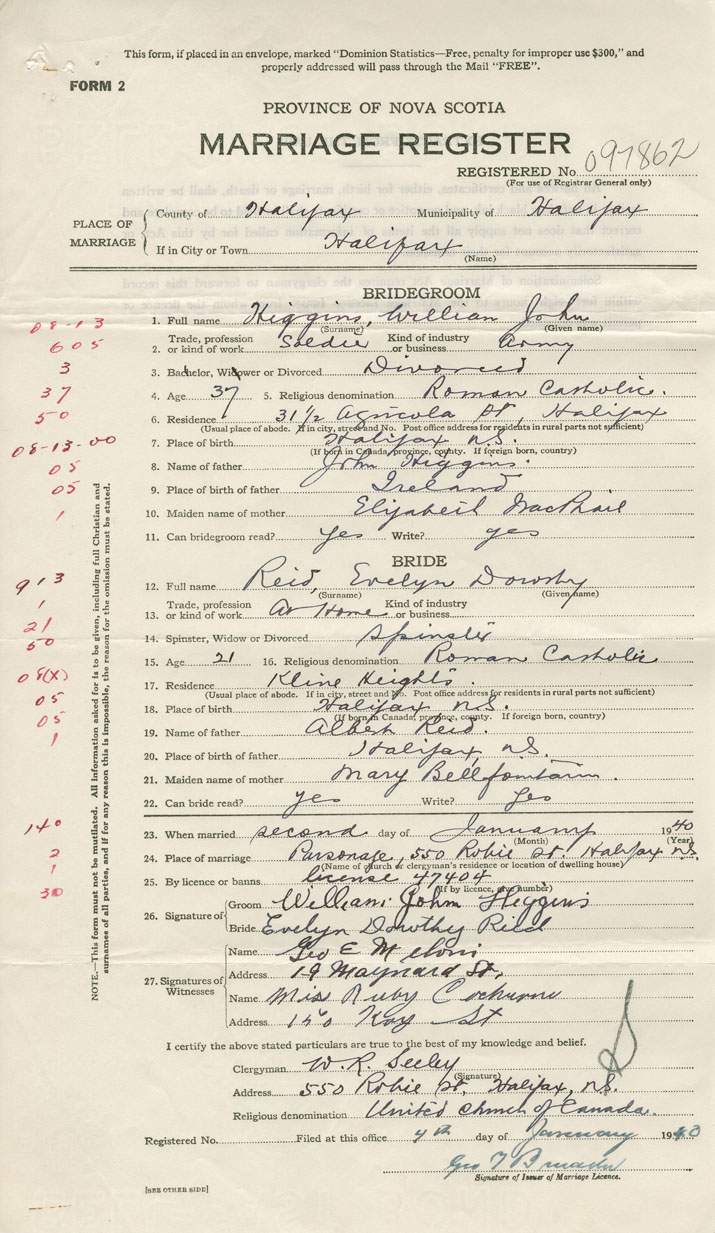 This form, if placed in an envelope, marked "Dominion Statistics—Free, penalty for improper use $300," and
properly addressed will pass through the Mail "FREE".
FORM 2
PROVINCE OF NOVA SCOTIA
MARRIAGE REGISTER
REGISTERED No. 097862
(For use of Registrar General only)
PLACE OF MARRIAGE
County of Halifax Municipality of Halifax
If in City or Town Halifax
(Name)
BRIDEGROOM
08-13
1. Full name Higgins, William John
(Surname) (Given name)
605
2. Trade, profession or kind of work Soldier Kind of industry or business Army
3
3. Bachelor, Widower or Divorced Divorced
37
4. Age 37 5. Religious denomination Roman Catholic.
50
6. Residence 31½ Agricola St, Halifax
(Usual place of abode. If in city, street and No. Post office address for residents in rural parts not sufficient)
08-13-00
7. Place of birth Halifax N.S.
(If born in Canada, province, county. If foreign born, country)
05
8. Name of father John Higgins.
05
9. Place of birth of father Ireland
1
10. Maiden name of mother Elizabeth MacPhail
11. Can bridegroom read? Yes Write? yes
BRIDE
913
12. Full name Reid, Evelyn Dorothy
(Surname) (Given name)
1
13. Trade, profession or kind of work At Home Kind of industry or business
21
14. Spinster, Widow or Divorced Spinster
50
15. Age 21 16. Religious denomination Roman Catholic
08(X)
17. Residence Kline Heights.
(Usual place of abode. If in city, street and No. Post office address for residents in rural parts not sufficient)
05
18. Place of birth Halifax N.S.
(If born in Canada, province, county. If foreign born, country)
05
19. Name of father Albert Reid.
1
20. Place of birth of father Halifax, N.S.
21. Maiden name of mother Mary
22. Can bride read? yes Write? yes
140
23. When married second day of January 1940
(Month) (Year)
2
24. Place of marriage Parsonage, 550 Robie St. Halifax N.S.
(Name of church or clergyman's residence or location of dwelling house)
1
25. By licence or banns license 47404
(If by licence, give number)
30
26. Signature of
Groom William John Higgins
Bride Evelyn Dorothy Reid
27. Signatures of Witnesses
Name Geo E
Address 19 Maynard St,
Name Miss Ruby
Address 150 Kay St
I certify the above stated particulars are true to the best of my knowledge and belief.
Clergyman W. R. Seeley
(Signature)
Address 550 Robie St. Halifax, N.S.
Religious denomination United Church of Canada.
Registered No. Filed at this office 4th day of January 1940
Geo T
Signature of Issuer of Marriage Licence.
[SEE OTHER SIDE]
NOTE.—This form must not be mutilated. All information asked for is to be given, including full Christian and
surnames of all parties, and if for any reason this is impossible, the reason for the omission must be stated.